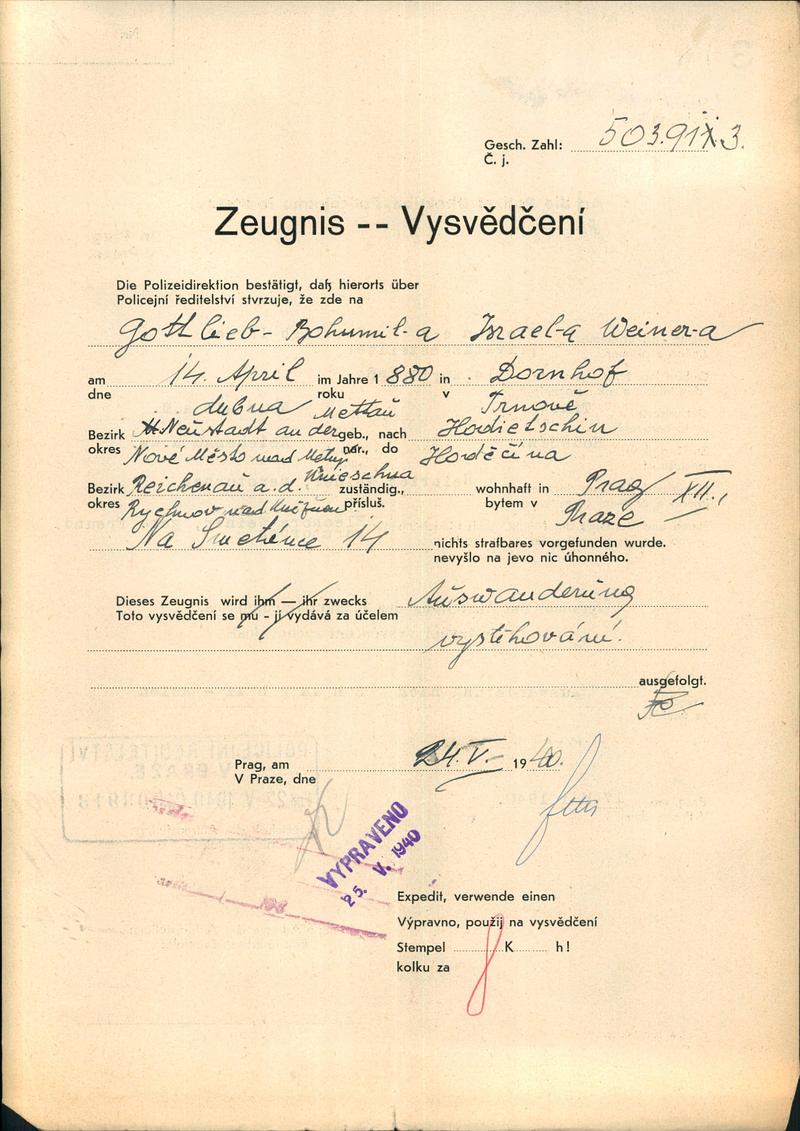 Gesch. Zahl: 503.91
Č. j.
Zeugnis -- Vysvědčení
Die Polizeidirektion bestätigt, daß hierorts über
Policejní ředitelství stvrzuje, že zde na
Gottlieb- Bohumil-a Israel-a Weiner-a
am 14. April im Jahre 1 880 in Dornhof
dne dubna roku v Trnově
Mettau
Bezirk Neustadt an der geb., nach Hodietschin
okres Nové Město nad Metují nar., do Hoděčína
Bezirk Reichenau a. d. Knieschna zuständig., wohnhaft in Prag XII.,
okres Rychnov nad Kněžnou přísluš. bytem v Praze
Na Smetánce 14 nichts strafbares vorgefunden wurde.
nevyšlo na jevo nic úhonného.
Dieses Zeugnis wird ihm — ihr zwecks Auswanderung
Toto vysvědčení se mu - jí vydává za účelem
vystěhování.
ausgefolgt.
Prag, am 24. V. 1940.
V Praze, dne
VYPRAVENO
25. V. 1940
Expedit, verwende einen
Výpravno, použij na vysvědčení
Stempel K h!
kolku za